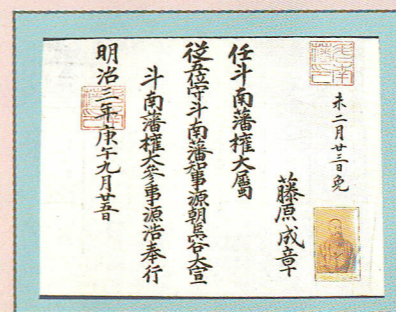 未二月廿三日免
藤原成章
任斗南藩權大属
従五位守斗南藩知事源朝臣容大宣
斗南藩權大参事源浩奉行
明治三年庚午九月廿五日